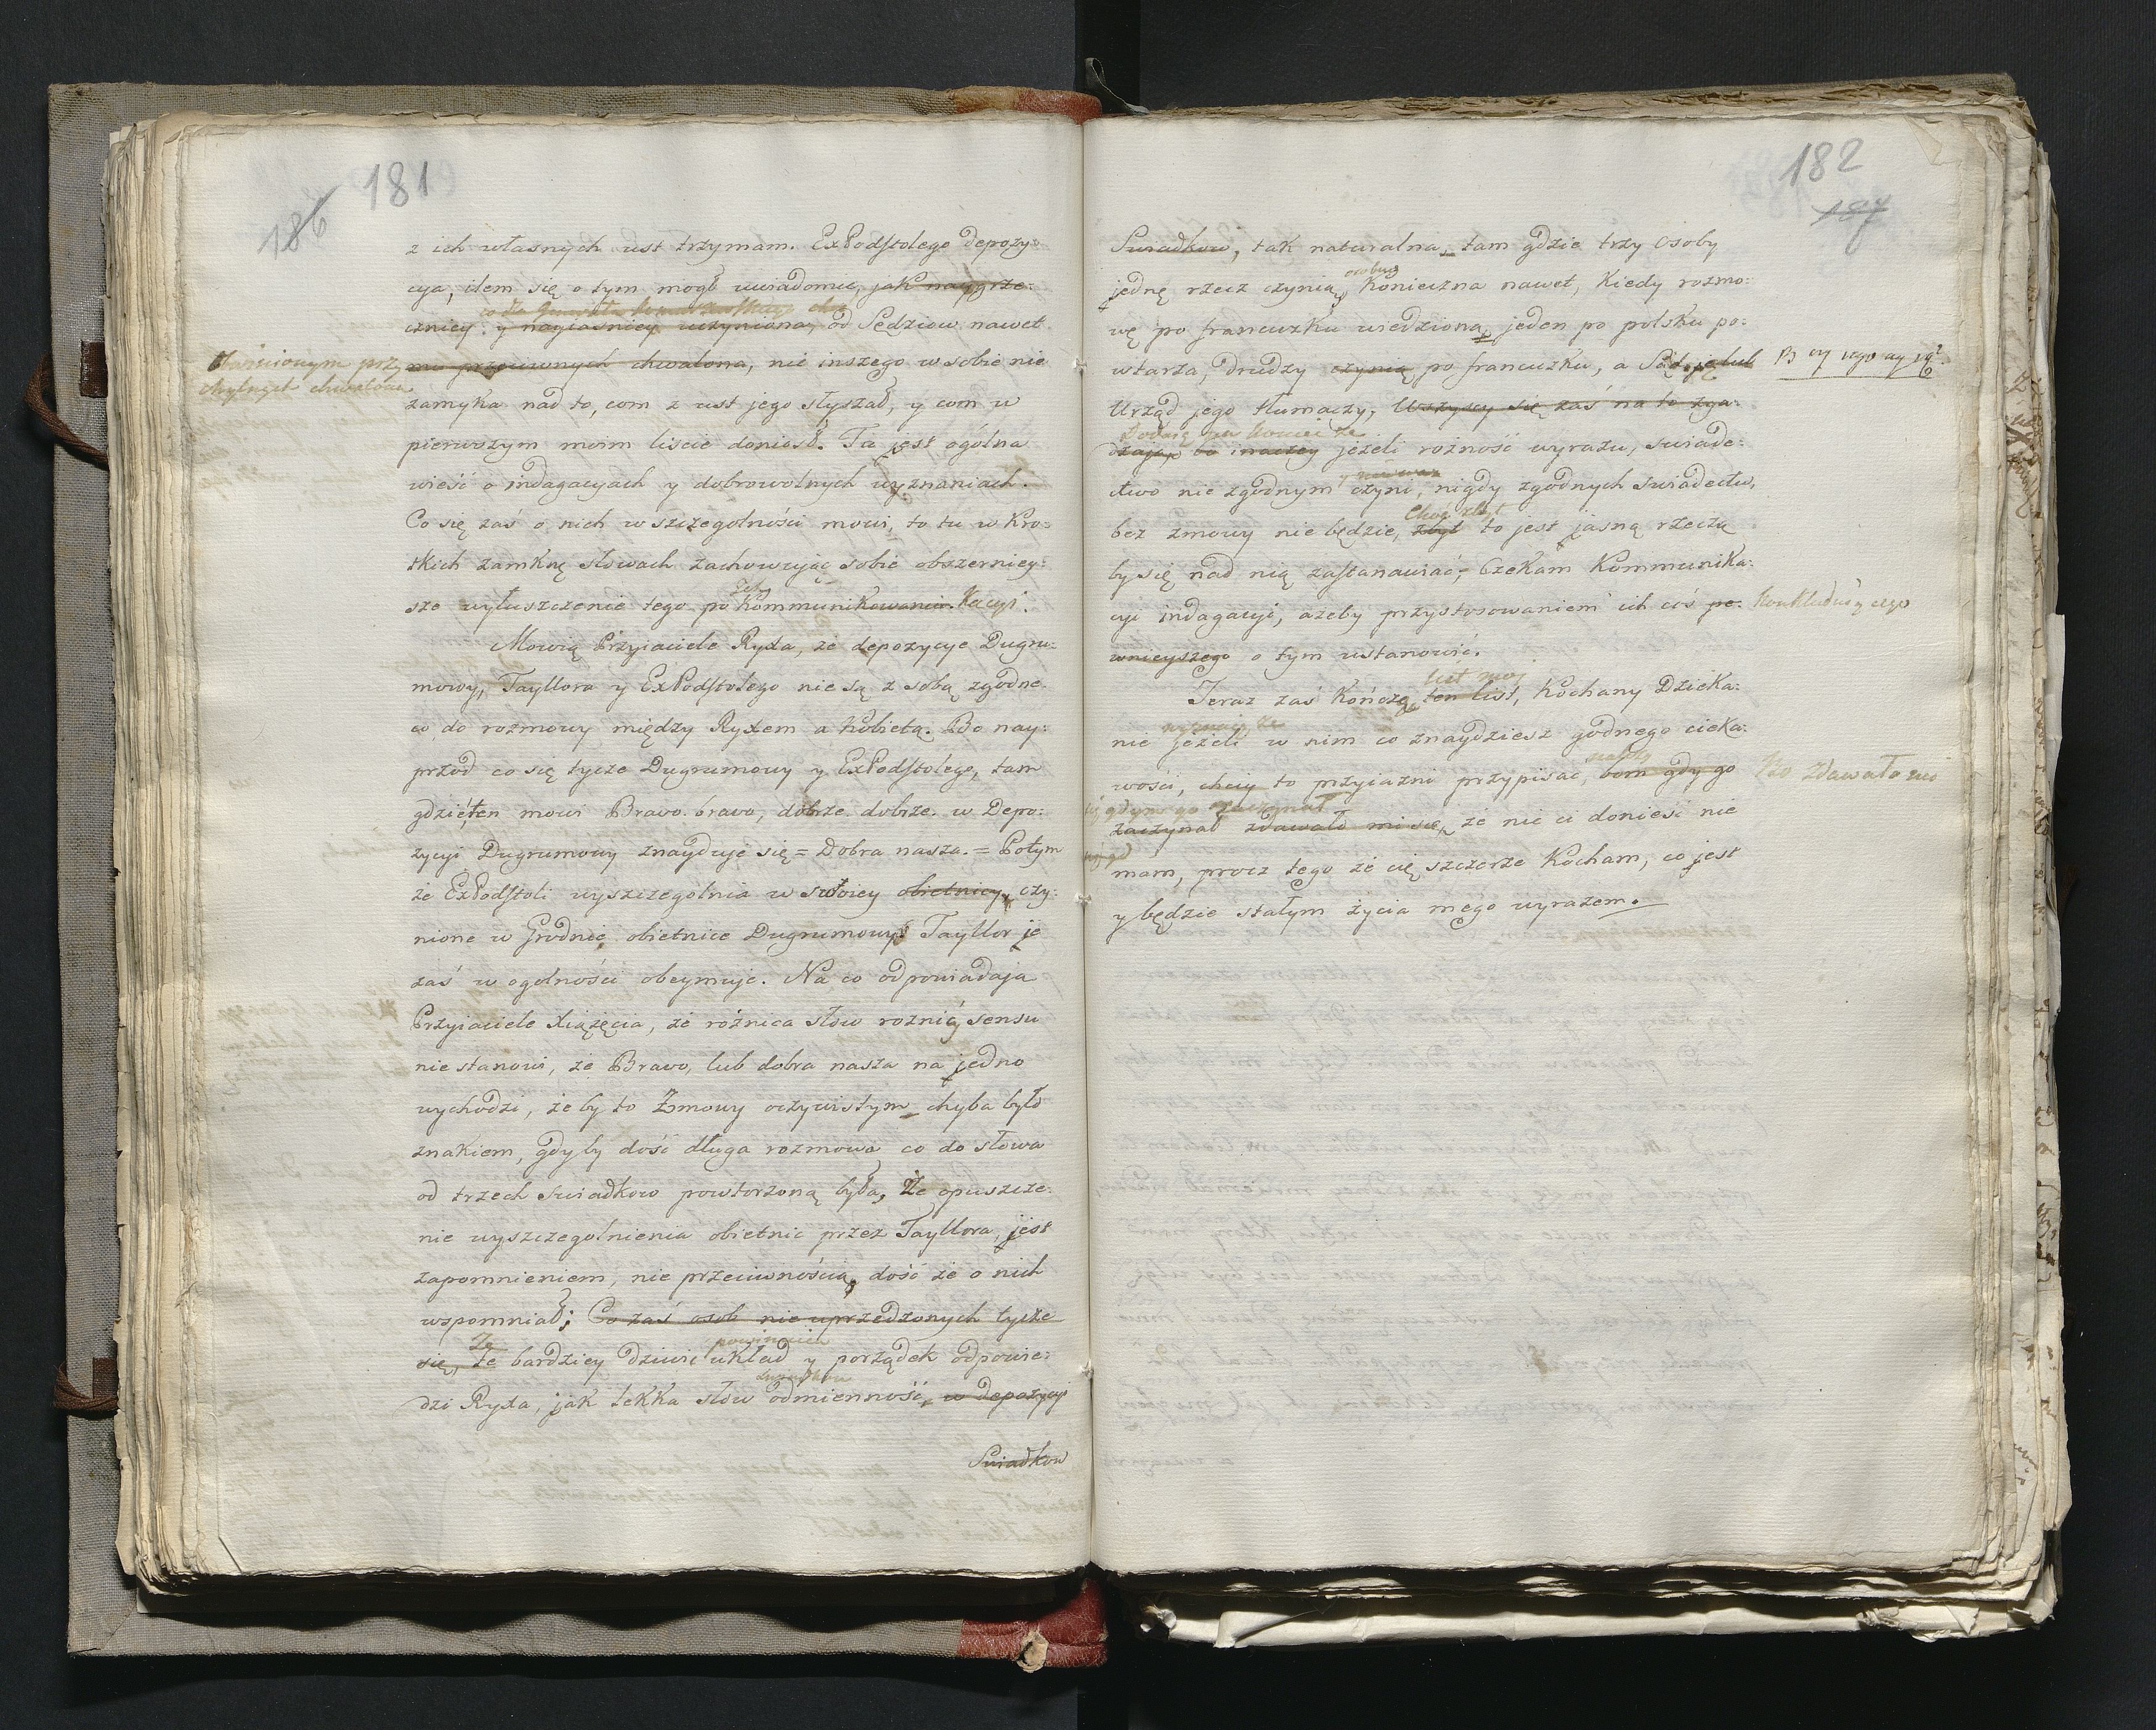 186 181
z ich własnych ust trzymam. ExPodstolego depozy:
cya, ilem się o tym mogł uwiadomić, jak naygrze:
czniey y nayiasniey uczyniona, od Sędziow nawet
mu przeciwnych chwalona, nic inszego w sobie nie
chylnych chwalona
zamyka nad to, com z ust jego słyszał, y com w
pierwszym moim liscie doniosł. Ta jest ogólna
wieść o indagacyach y dobrowolnych wyznaniach.
Co się zaś o nich w szczegolności mowi, to tu w kro:
tkich zamknę słowach zachowując sobie obszerniey:
sze wyłuszczenie tego po Kommunikowaniu. kacyi.
Mowią Przyiaciele Ryxa, że depozycye Dugru:
mowy, Tayllora y ExPodstolego nie są z sobą zgodne
co do rozmowy między Ryxem a kobietą. Bo nay:
przod co się tycze Dugrumowy y ExPodstolego, tam
gdzie ten mowi Bravo. bravo, dobrze. dobrze. w Depo:
zycyi Dugrumowy znayduje się = Dobra nasza. = Potym
że ExPodstoli wyszczegolnia w swoiey obietnicy, czy:
nione w Grodnie obietnice Dugrumowy: Tayllor je
zaś w ogolności obeymuje. Na co odpowiadaja
Przyiaciele Xiążęcia, że rożnica słow rożnicy sensu
nie stanowi, że Bravo, lub dobra nasza na jedno
wychodzi, żeby to Zmowy oczywistym chyba było
znakiem, gdyby dość długa rozmowa co do słowa
od trzech swiadkow powtorzoną była, Że opuszcze:
nie wyszczegolnienia obietnic przez Tayllora, jest
zapomnieniem, nie przeciwnością, dość że o nich
wspomniał; Co zaś osob nie uprzedzonych tycze
Że powinien
się, te bardziey dziwi układ y porządek odpowie:
dzi Ryxa, jak lekka słow odmienność, w depozycyi
Swiadkow
182
187
Swiadkow, tak naturalna, tam gdzie trzy osoby
jednę rzecz czynią, Konieczna nawet, kiedy rozmo:
wę po francuzku wiedzioną, jeden po polsku po:
wtarza, drudzy czynią po francuzku, a Sąd ją lub
Urząd jego tłumaczy, Wszyscy się zaś na to zga:
dzają, bo inaczey jeżeli rożność wyrazu, swiade:
ctwo nie zgodnym czyni, nigdy zgodnych swiadectw,
bez zmowy nie będzie, zbyt to jest jasną rzeczą
by się nad nią zastanawiać; Czekam Kommunika:
cyi indagacyi, ażeby przystosowaniem ich coś pe:
wnieyszego o tym ustanowić.
list moy
Teraz zaś kończę ten list, Kochany Dzieka:
nie jeżeli w nim co znaydziesz godnego cieka:
wości, chciy to przyiazni przypisać, bom gdy go
Bo zdawało mi
się gdym go zaczynał
zaczynał zdawało mi się, że nic ci donieść nie
mam, procz tego że cię szczerze Kocham, co jest
y będzie stałym życia mego wyrazem.